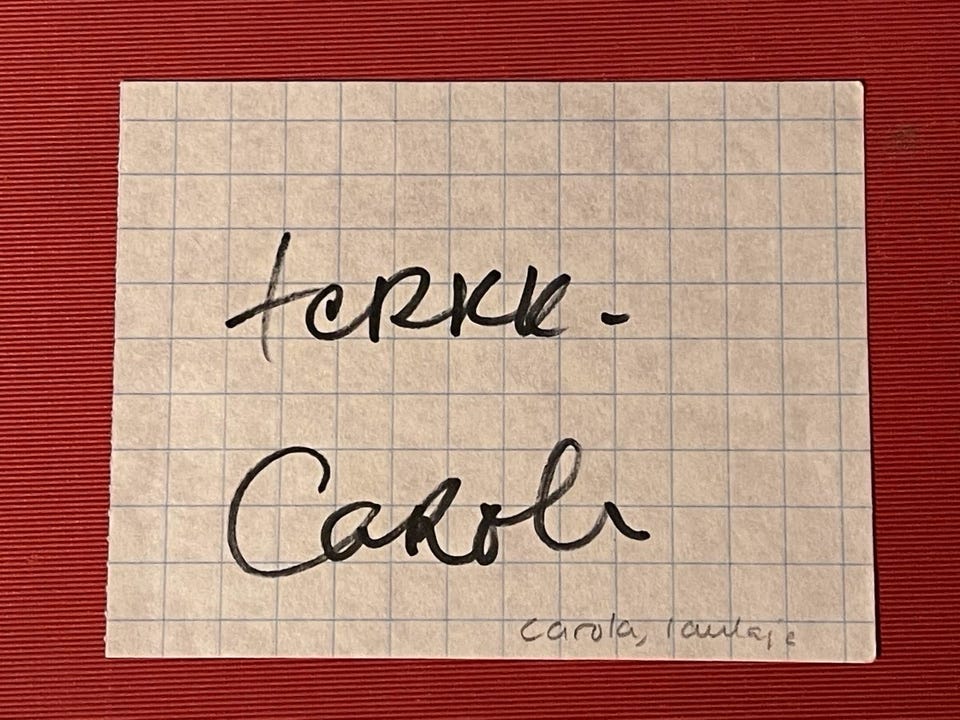 terkk.
Carola
carola, laulaja